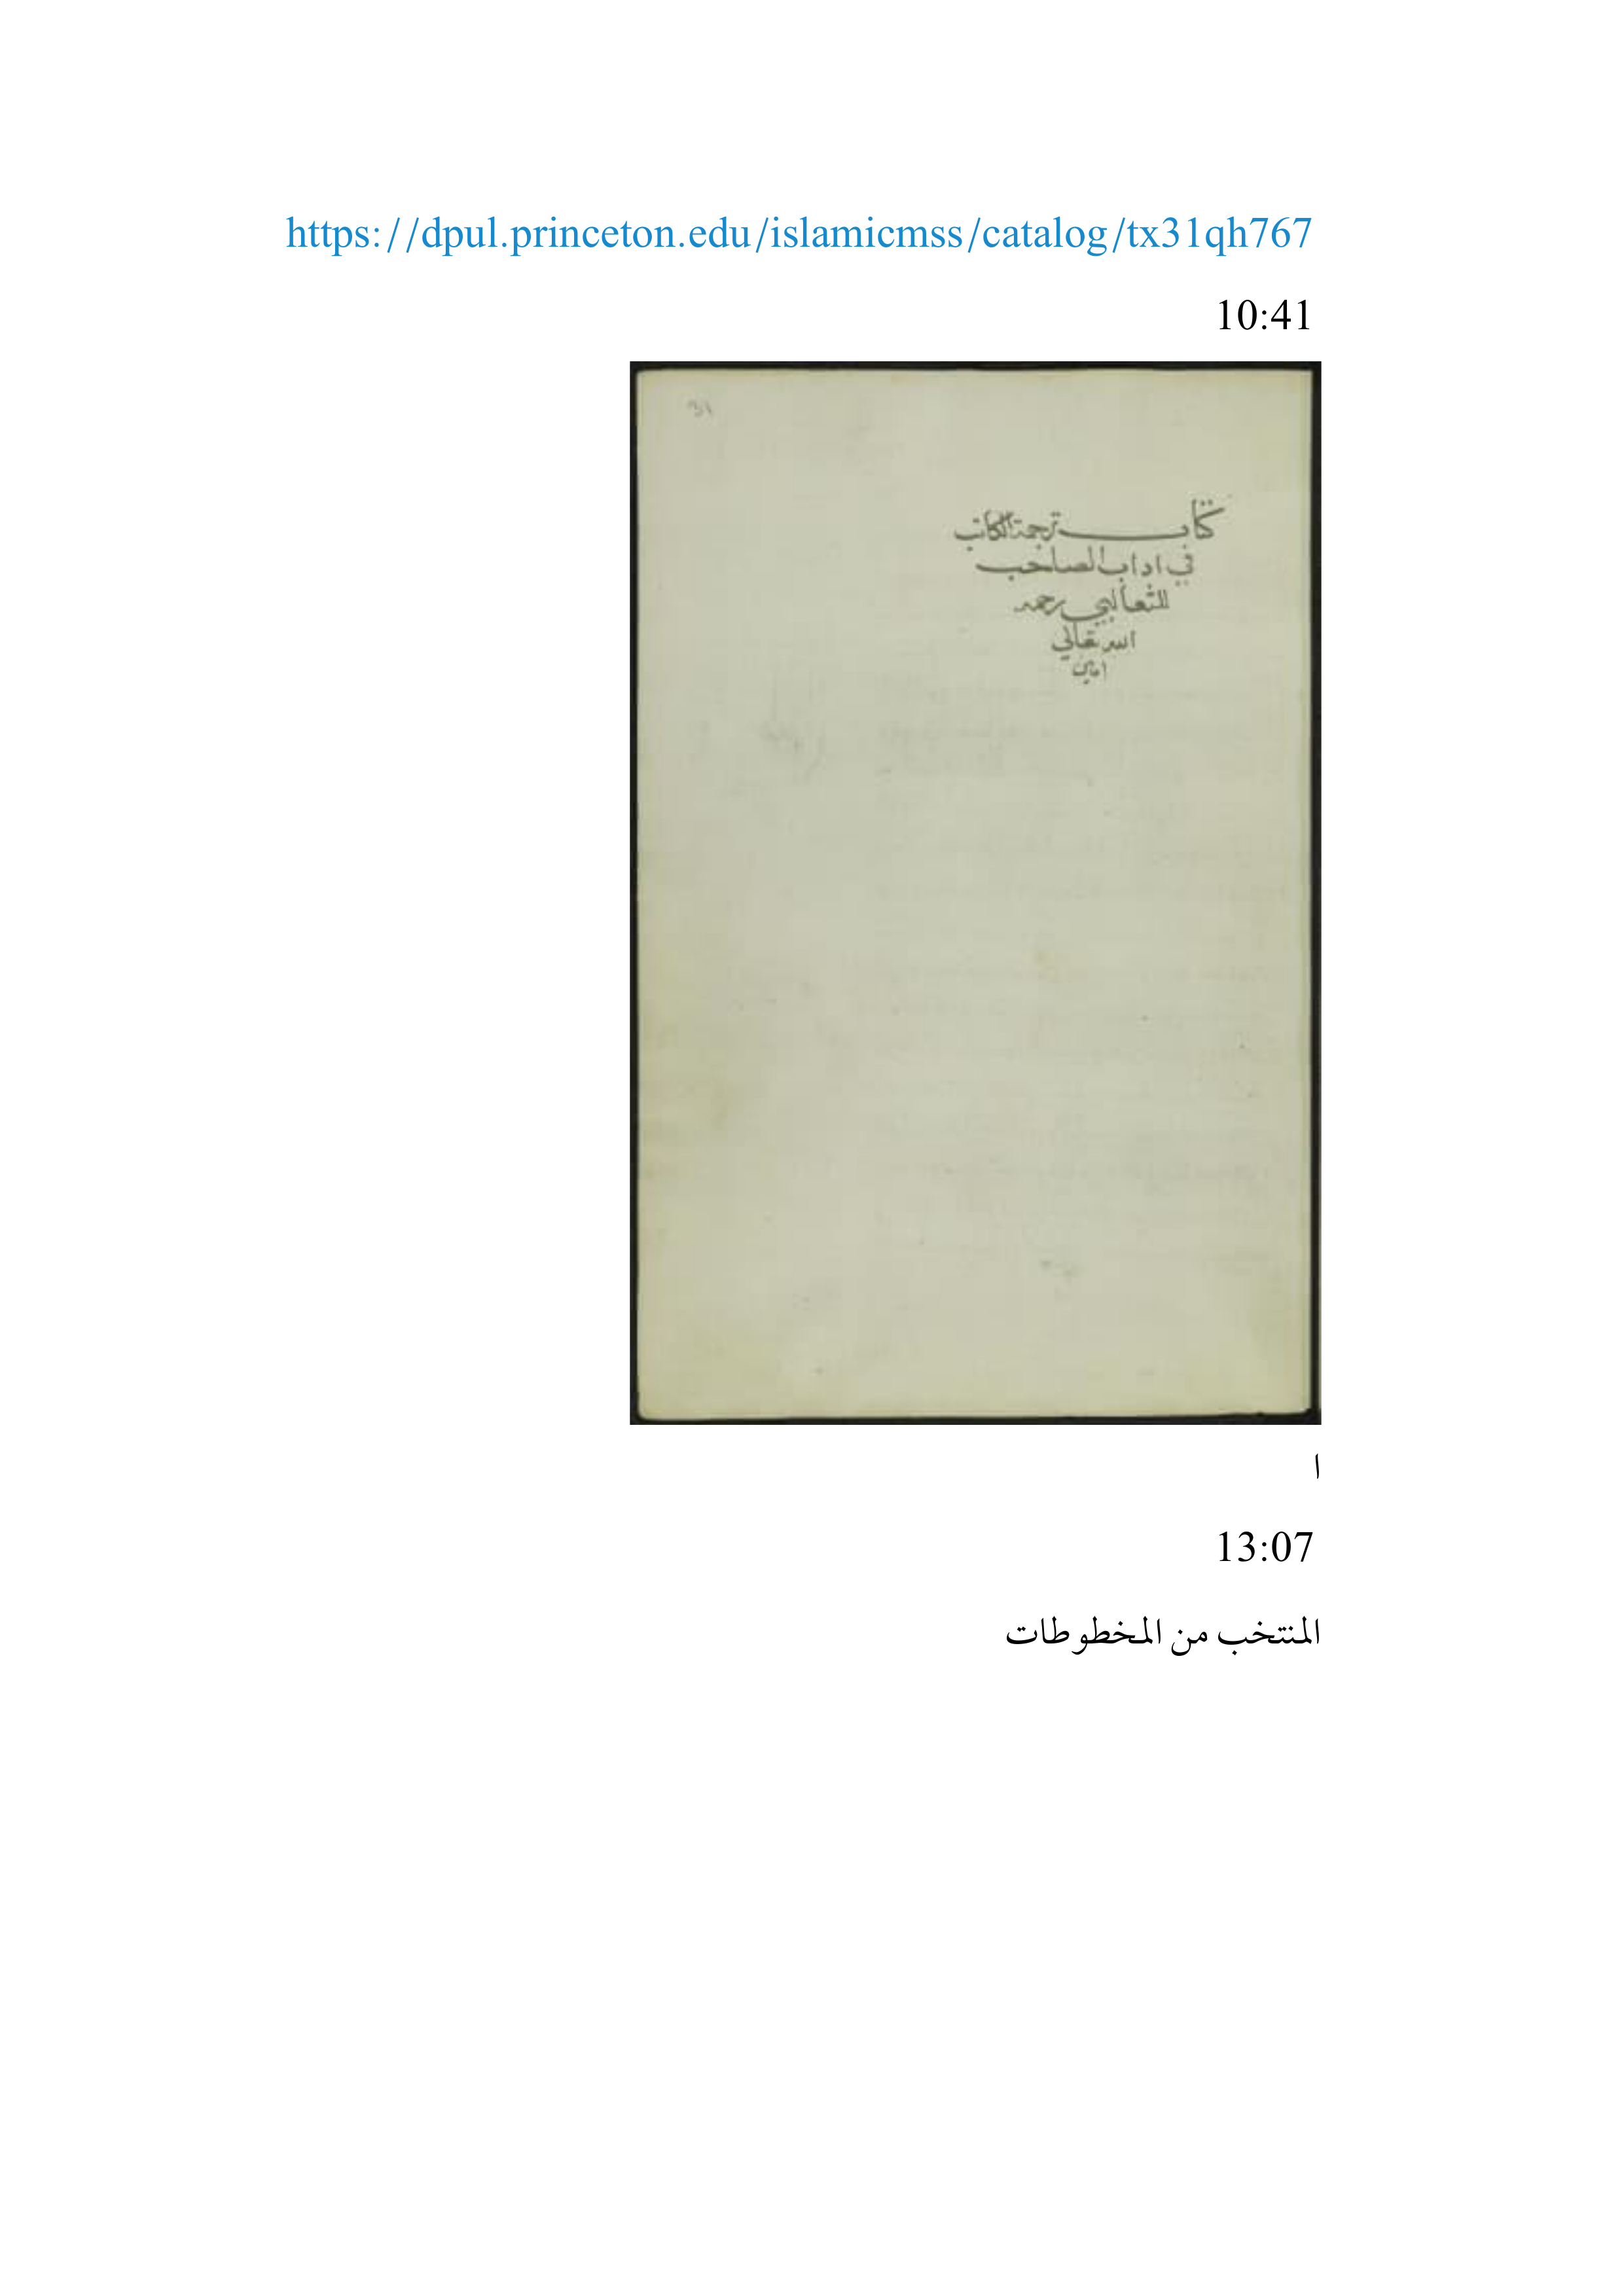 https://dpul.princeton.edu/islamicmss/catalog/tx31qh767
10:41
31
كتاب ترجمة الكاتب
في اداب الصاحب
للثعالبي رحمه
الله تعالي
امين
ا
13:07
المنتخب من المخطوطات